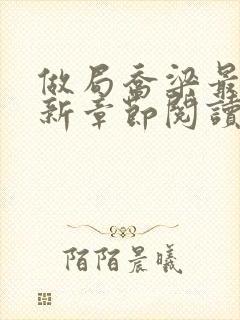 做局喬梁最
新章節閱讀
陌陌晨曦